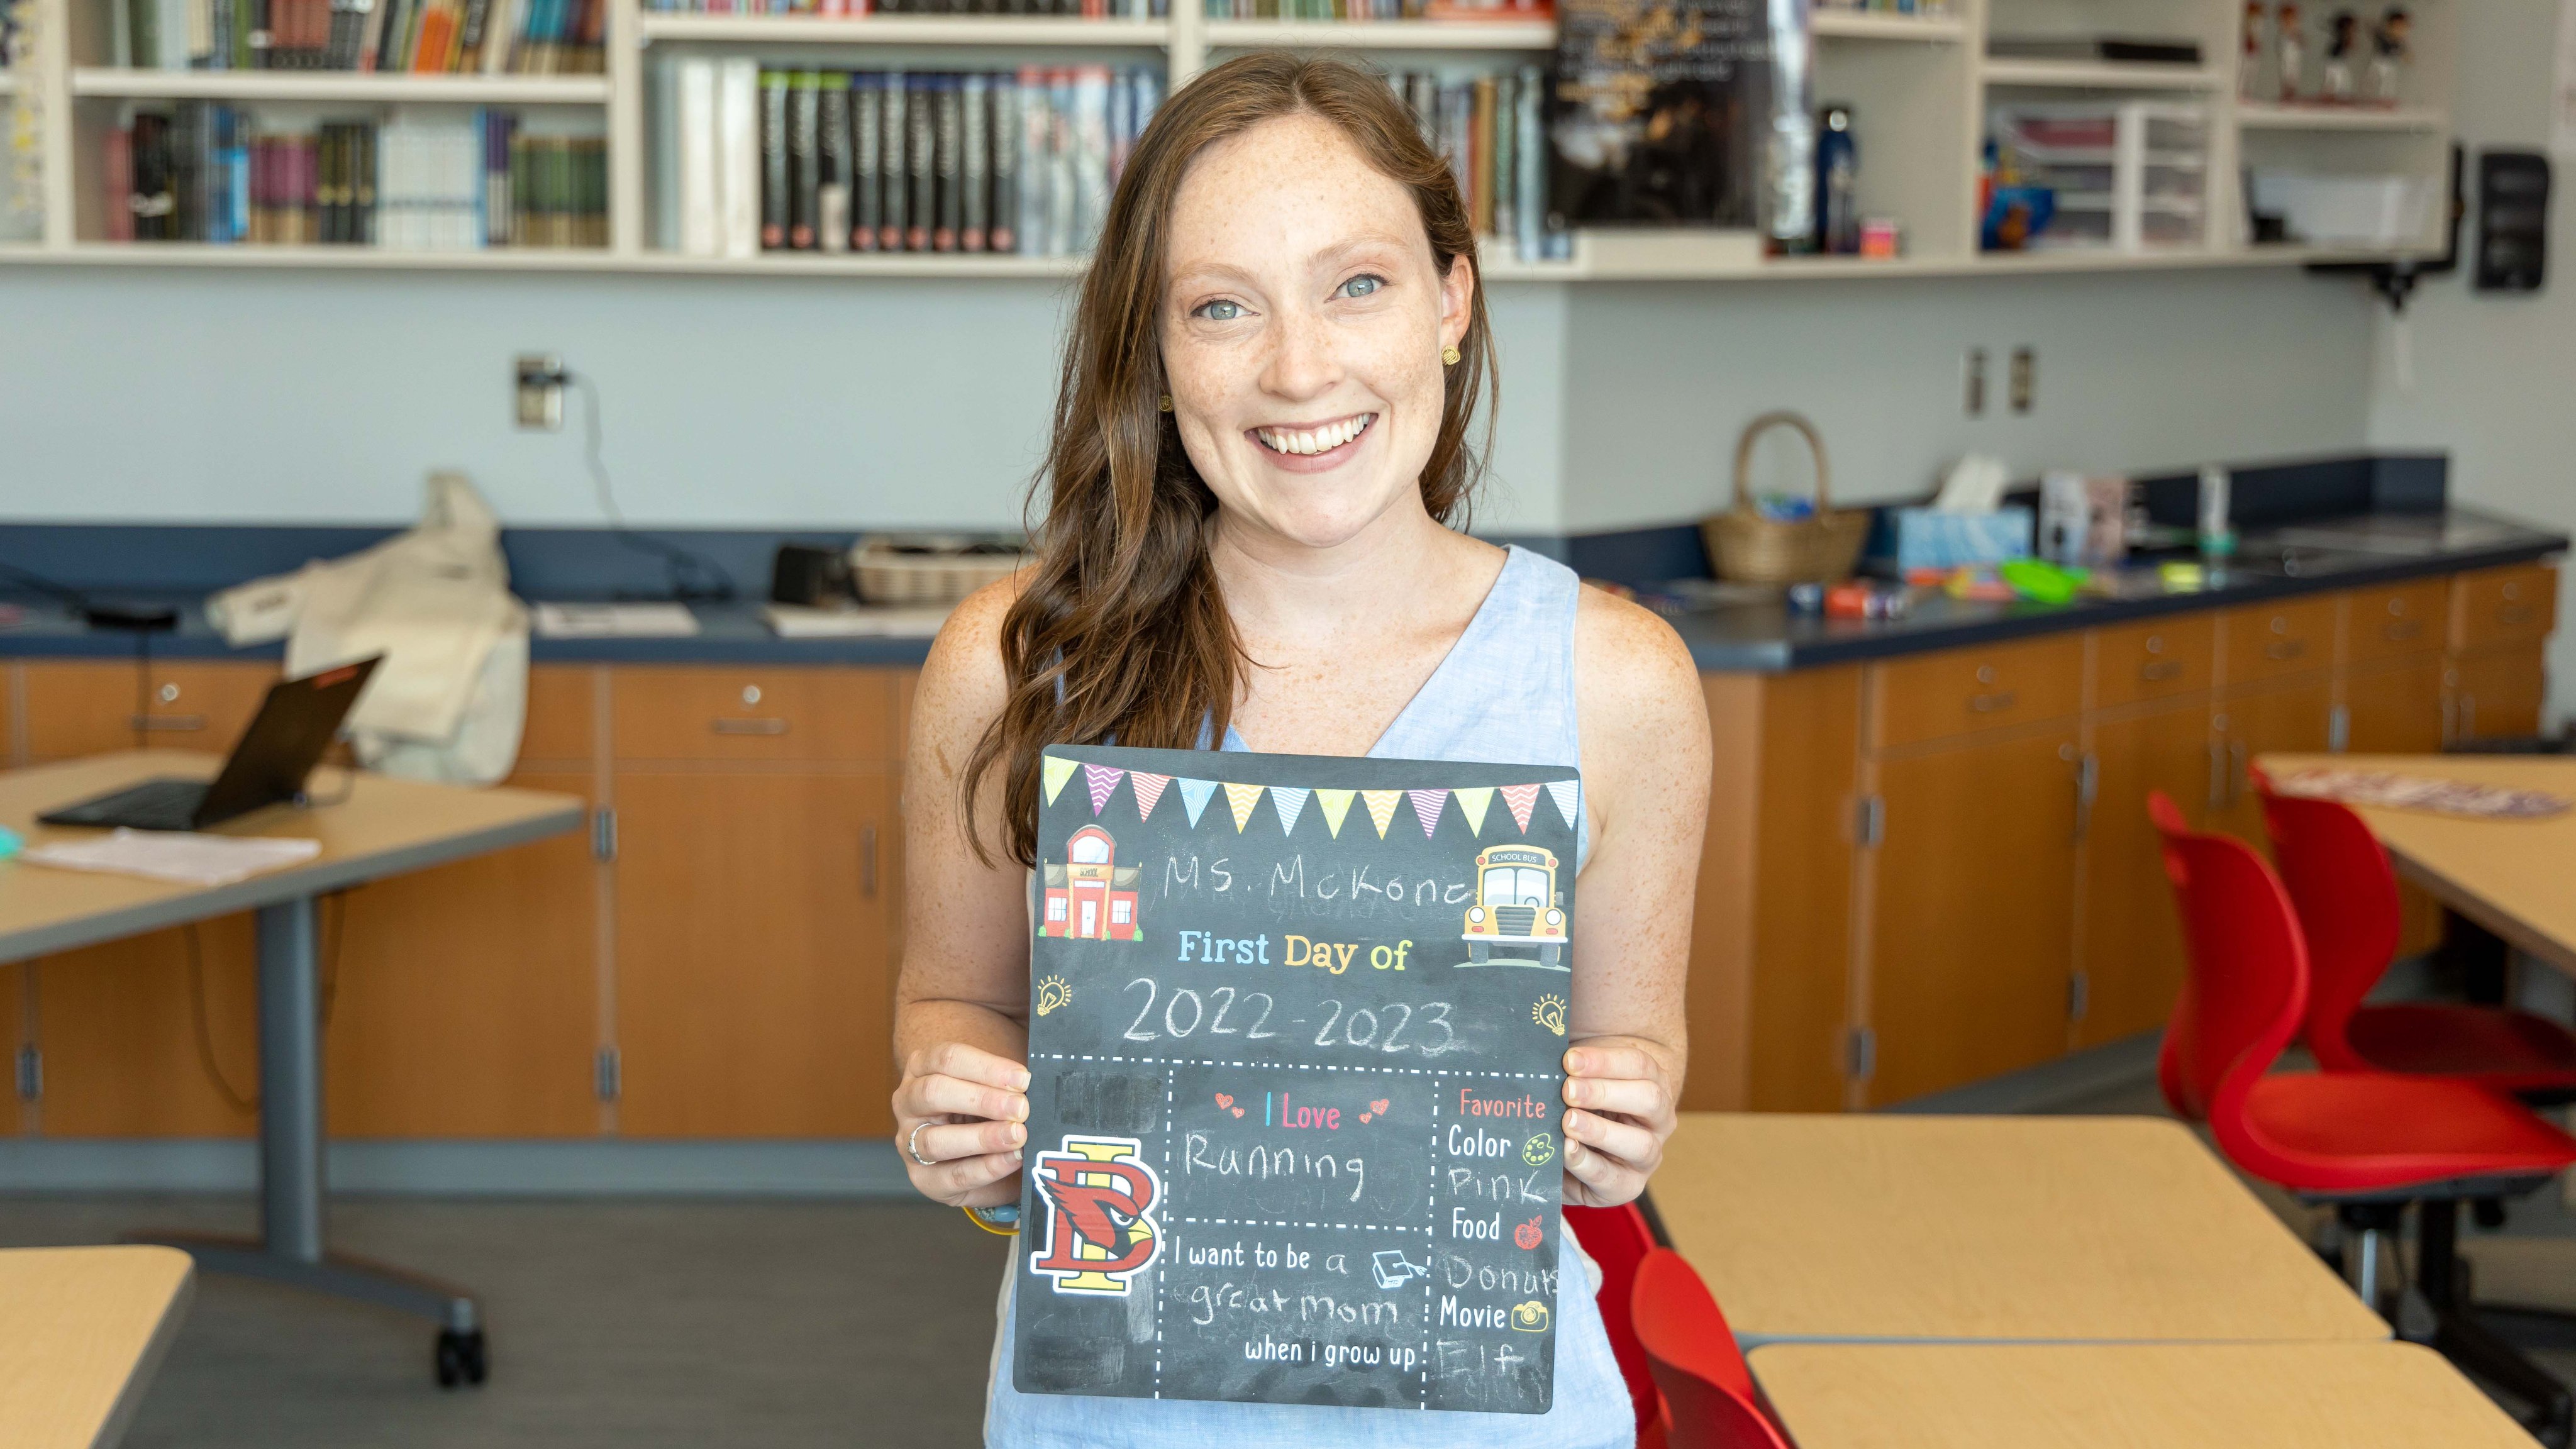 SCHOOL BUS
SCHOOL
Ms. McKone
First Day of
2022-2023
I Love
Running
I want to be a
great mom
when i grow up
Favorite
Color
Pink
Food
Donuts
Movie
Elf
BI